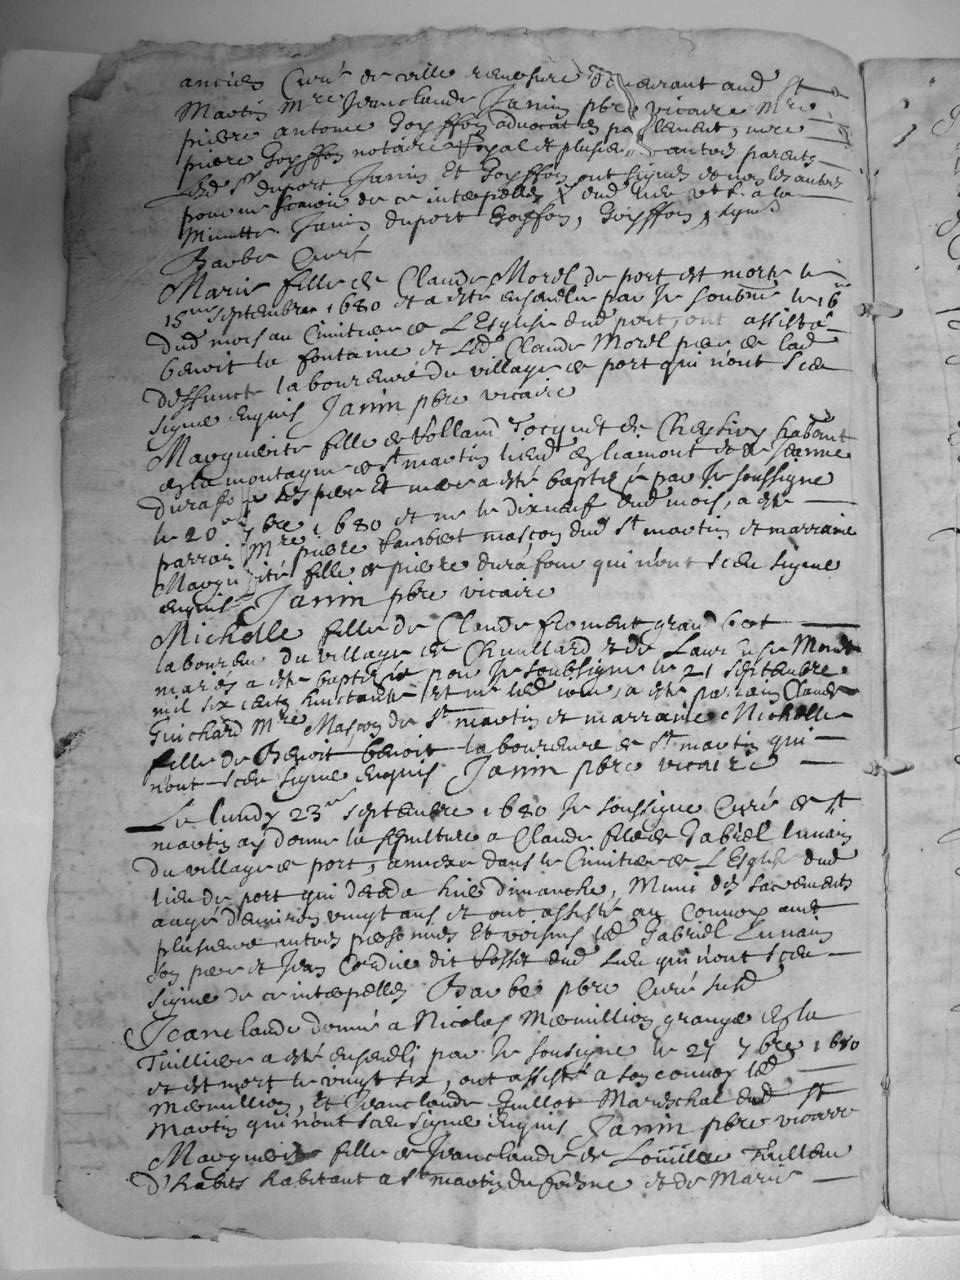 ancien Curé de ville reversure demeurant aud St
Martin Mre Jeanclaude Janin pbre vicaire Mre
pierre antoine Goyffon advocat en parlement, mre
pierre Goyffon notaire Royal et plusieurs autres parents
led Sr duport Janin et Goyffon ont signés et non les autres
pour ne scavoir de ce interpellés
Minutte Janin duport Goyffon, Goyffon, signés
Barbe Curé
Marie fille de Claude Morel de port est morte le
15me septembre 1680 et a esté ensevelie par Je soubné le 16
dud mois au Cimitiere de L'Eglise dud port, ont assisté
benoit la fontaine et led Claude Morel pere de lad
deffuncte laboureurs du village de port qui n'ont sceu
signe enquis Janin pbre vicaire
Marguerite fille de
de la montagne de st martin et de Jeanne
durafour ses pere et mere a esté baptisée par Je soussigne
le 20e 7bre 1680 et nee le dixneuf dud mois, a esté
parrain Mre pierre masson dud st martin et marraine
Marguerite fille de pierre durafour qui n'ont sceu signe
enquis Janin pbre vicaire
Michelle fille de Claude froment grand
laboureur du village de Chuillard et de Laurence
mariés a esté baptisée par Je soubsigne le 21 septembre
mil six cents huictante et nee led jour, a esté parrain Claude
Guichard Mre Masson de st martin et marraine Michelle
fille de Benoit benoit laboureur de st martin qui
nont sceu signe enquis Janin pbre vicaire
Le lundy 23me septembre 1680 Je soussigne Curé de st
martin ay donne la sepulture a Claude fils de Gabriel
du village de port, annexe dans le Cimitiere de L'Eglise dud
lieu de port qui deceda hier dimanche, Muni des sacrements
aagé d'environ vingt ans et ont assisté au Convoy avec
plusieurs autres personnes et voisins led Gabriel
son pere et Jean Cordie dit dud lieu qui n'ont sceu
signe de ce interpellés Barbe pbre Curé susd
Jeanclaude donné a Nicolas Mermillion granger de la
Tuilliere a esté enseveli par Je sousigne le 27 7bre 1680
et est mort le vingt six, ont assisté a son convoy led
Mermillion, et Jeanclaude Guillot Mareschal dud st
martin qui n'ont sceu signe enquis Janin pbre vicaire
Marguerite fille de Jeanclaude de Tailleur
D'habits habitant a st martin du fresne et de Marie